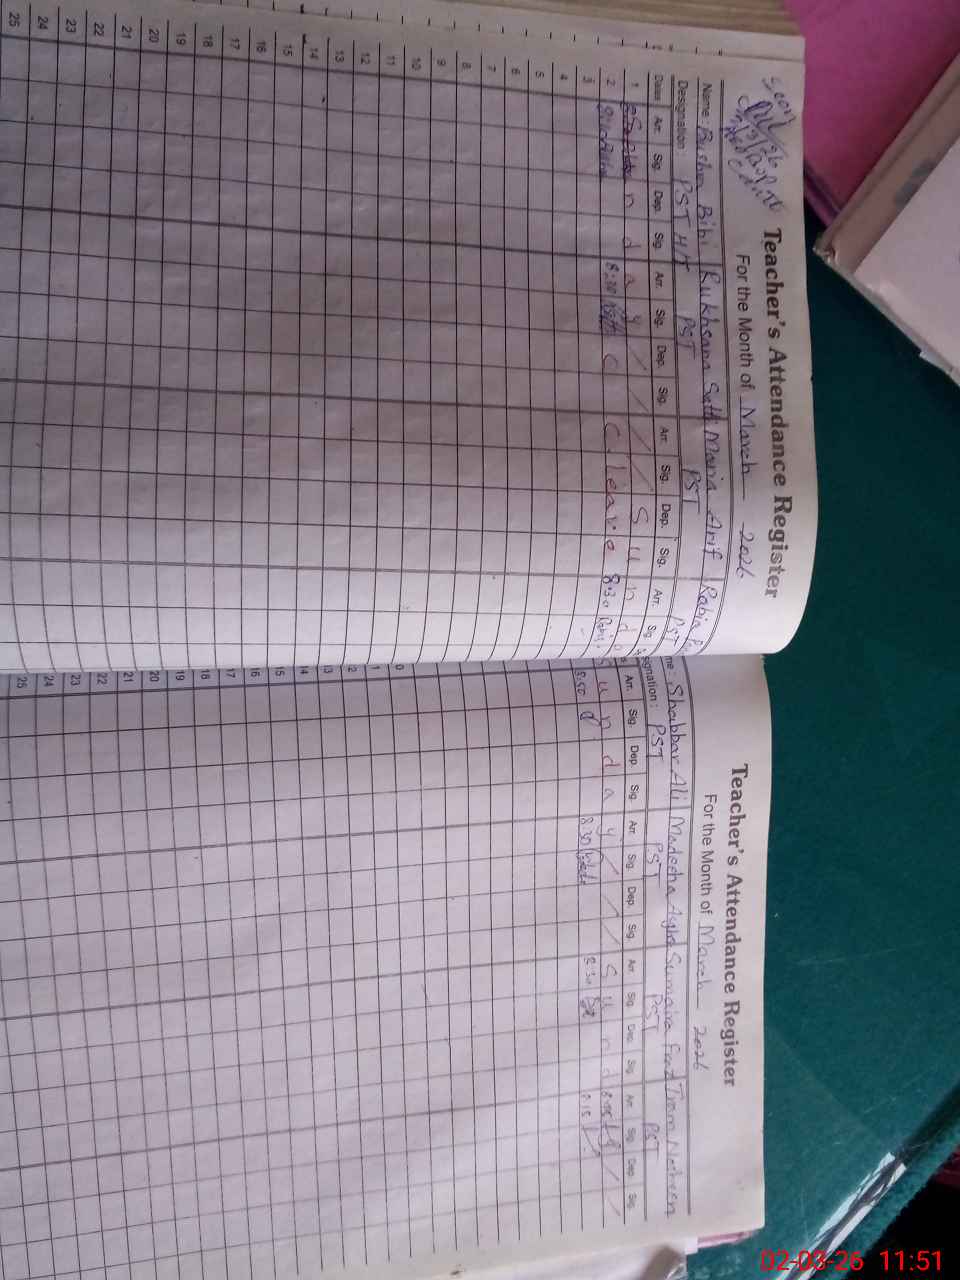 Teacher's Attendance Register
For the Month of March 2026
Name: Bushra Bibi Rukhsana Satti Maria Arif Rabia
Designation: PST H/T PST PST PST
Date Arr. Sig. Dep. Sig. Arr. Sig. Dep. Sig. Arr. Sig. Dep. Sig. Arr. Sig.
1 n d a y S u n d
2 8:30 C C. leave 8:30 Rabi
3
4
5
6
7
8
9
10
11
12
13
14
15
16
17
18
19
20
21
22
23
24
25
Teacher's Attendance Register
For the Month of March 2026
me: Shabbar Ali Madeeha Ayub Sumaira
signation: PST PST PST PST
Arr. Sig. Dep. Sig. Arr. Sig. Dep. Sig. Arr. Sig. Dep. Sig. Arr. Sig. Dep. Sig.
S u n d a y S u n d
8:50 8:30 8:30 8:15
0
1
2
13
14
15
16
17
18
19
20
21
22
23
24
25
02-03-26 11:51